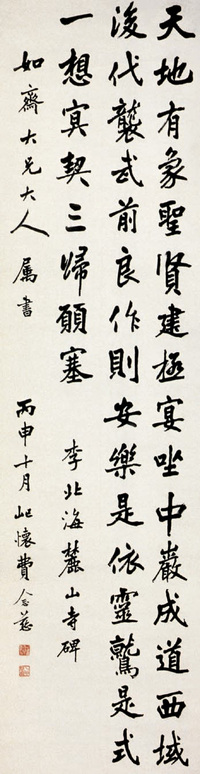 天地有象聖賢建極宴坐中巖成道西域
後代襲武前良作則安樂是依靈鷲是式
一想冥契三歸願塞 李北海麓山寺碑
如齋大兄大人 属書 丙申十月屺懷費念慈